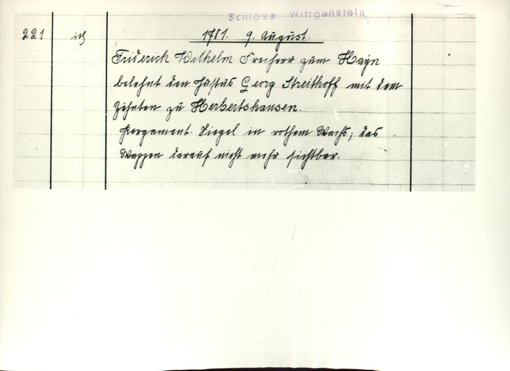 Schloss Wittgenstein
221 ich 1781. 9. August.
Friederich Wilhelm Freiherr zum Hayn
belehnt den Justus Georg Streithoff mit dem
Zehnten zu Herbertshausen.
Pergament. Siegel in rothem Wachs; das
Wappen darauf nicht mehr sichtbar.